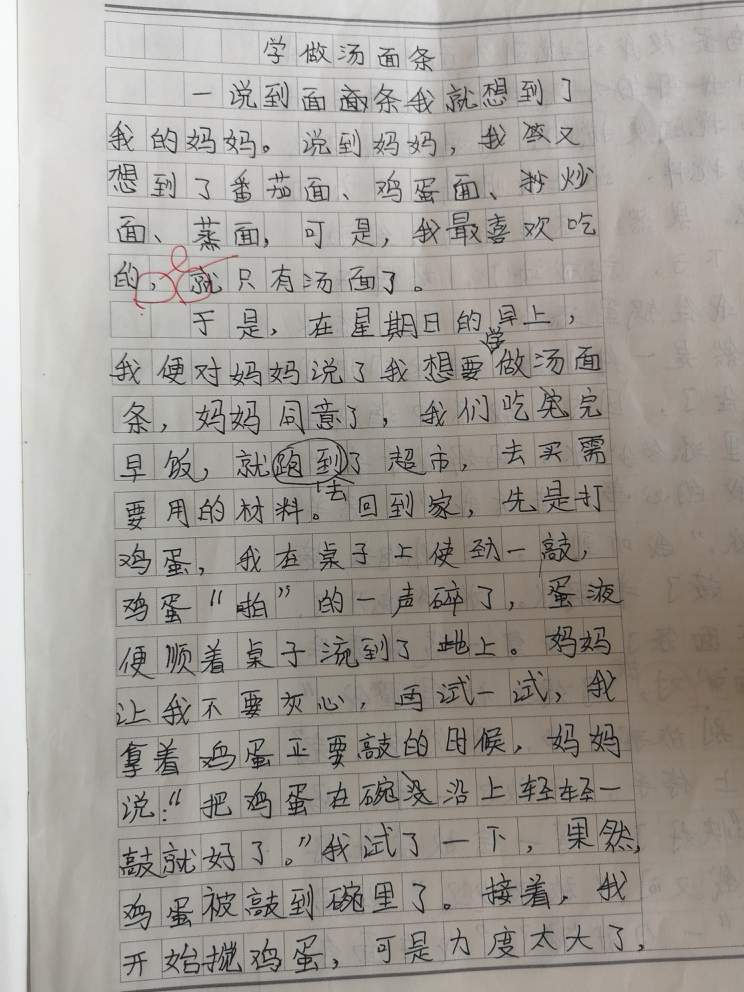 学做汤面条
一说到面条我就想到了
我的妈妈。说到妈妈，我又
想到了番茄面、鸡蛋面、炒
面、蒸面，可是，我最喜欢吃
的，就只有汤面了。
于是，在星期日的早上，
我便对妈妈说了我想要学做汤面
条，妈妈同意了，我们吃完
早饭，就跑到了超市，去买需
去
要用的材料。回到家，先是打
鸡蛋，我在桌子上使劲一敲，
鸡蛋“啪”的一声碎了，蛋液
便顺着桌子流到了地上。妈妈
让我不要灰心，再试一试，我
拿着鸡蛋正要敲的时候，妈妈
说：“把鸡蛋在碗沿上轻轻一
敲就好了。”我试了一下，果然，
鸡蛋被敲到碗里了。接着，我
开始搅鸡蛋，可是力度太大了，